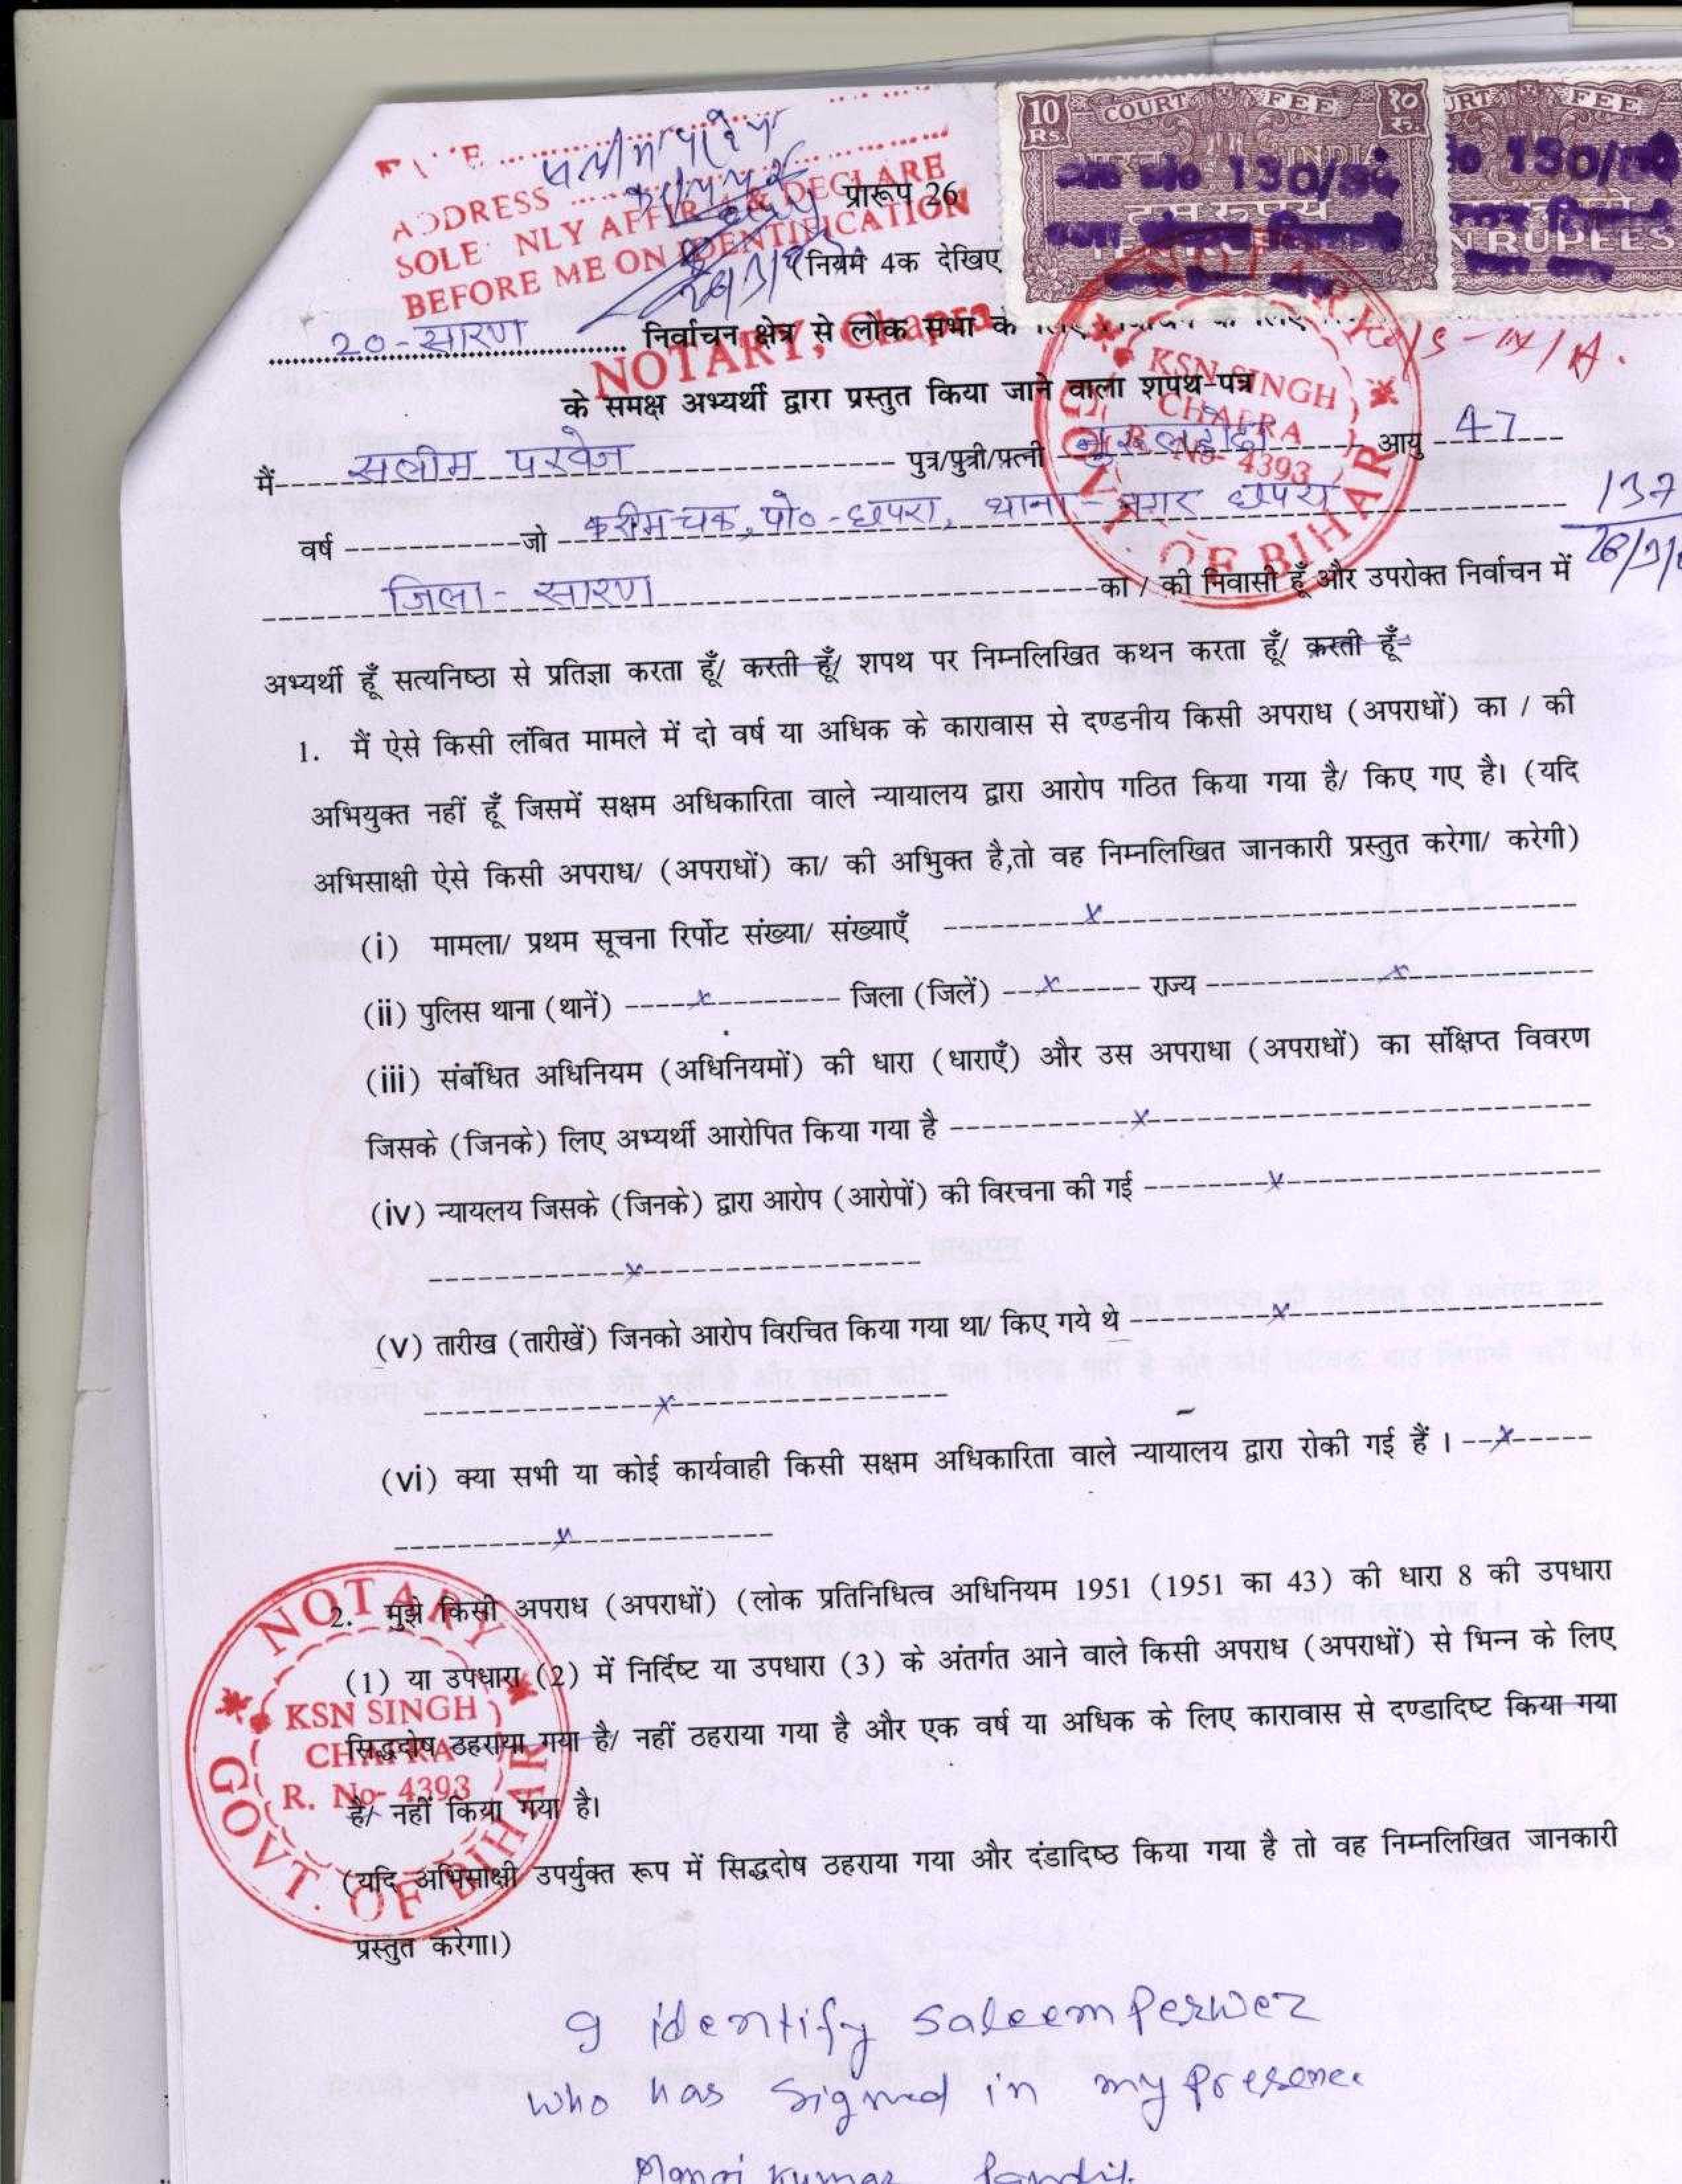 ADDRESS
SOLE NLY AFFIRM & DECLARE
BEFORE ME ON IDENTIFICATION
NOTARY, Chapra
10 Rs. COURT FEE १० रु.
INDIA
130/
दस रुपये
COURT FEE
130/
N RUPEES
प्रारूप 26
(नियम 4क देखिए
20-सारण निर्वाचन क्षेत्र से लोक सभा के
के समक्ष अभ्यर्थी द्वारा प्रस्तुत किया जाने वाला शपथ-पत्र
KSN SINGH
CHAPRA
R. No- 4393
OF BIHAR
मैं सलीम परवेज पुत्र/पुत्री/पत्नी नुरूलहोदा आयु 47
वर्ष जो करीमचक, पो०-छपरा, थाना-नगर छपरा
137
जिला-सारण का / की निवासी हूँ और उपरोक्त निर्वाचन में
अभ्यर्थी हूँ सत्यनिष्ठा से प्रतिज्ञा करता हूँ/ करती हूँ/ शपथ पर निम्नलिखित कथन करता हूँ/ करती हूँ-
1. मैं ऐसे किसी लंबित मामले में दो वर्ष या अधिक के कारावास से दण्डनीय किसी अपराध (अपराधों) का / की
अभियुक्त नहीं हूँ जिसमें सक्षम अधिकारिता वाले न्यायालय द्वारा आरोप गठित किया गया है/ किए गए है। (यदि
अभिसाक्षी ऐसे किसी अपराध/ (अपराधों) का/ की अभिुक्त है,तो वह निम्नलिखित जानकारी प्रस्तुत करेगा/ करेगी)
(i) मामला/ प्रथम सूचना रिर्पोट संख्या/ संख्याएँ x
(ii) पुलिस थाना (थानें) x जिला (जिलें) x राज्य x
(iii) संबंधित अधिनियम (अधिनियमों) की धारा (धाराएँ) और उस अपराधा (अपराधों) का संक्षिप्त विवरण
जिसके (जिनके) लिए अभ्यर्थी आरोपित किया गया है x
(iv) न्यायलय जिसके (जिनके) द्वारा आरोप (आरोपों) की विरचना की गई x
x
(v) तारीख (तारीखें) जिनको आरोप विरचित किया गया था/ किए गये थे x
x
(vi) क्या सभी या कोई कार्यवाही किसी सक्षम अधिकारिता वाले न्यायालय द्वारा रोकी गई हैं । x
x
2. मुझे किसी अपराध (अपराधों) (लोक प्रतिनिधित्व अधिनियम 1951 (1951 का 43) की धारा 8 की उपधारा
(1) या उपधारा (2) में निर्दिष्ट या उपधारा (3) के अंतर्गत आने वाले किसी अपराध (अपराधों) से भिन्न के लिए
सिद्धदोष ठहराया गया है/ नहीं ठहराया गया है और एक वर्ष या अधिक के लिए कारावास से दण्डादिष्ट किया गया
है/ नहीं किया गया है।
(यदि अभिसाक्षी उपर्युक्त रूप में सिद्धदोष ठहराया गया और दंडादिष्ठ किया गया है तो वह निम्नलिखित जानकारी
प्रस्तुत करेगा।)
NOTARY
KSN SINGH
CHAPRA
R. No- 4393
GOVT. OF BIHAR
I identify Saleem Perwez
who has signed in my presence
Manoj Kumar Pandit.